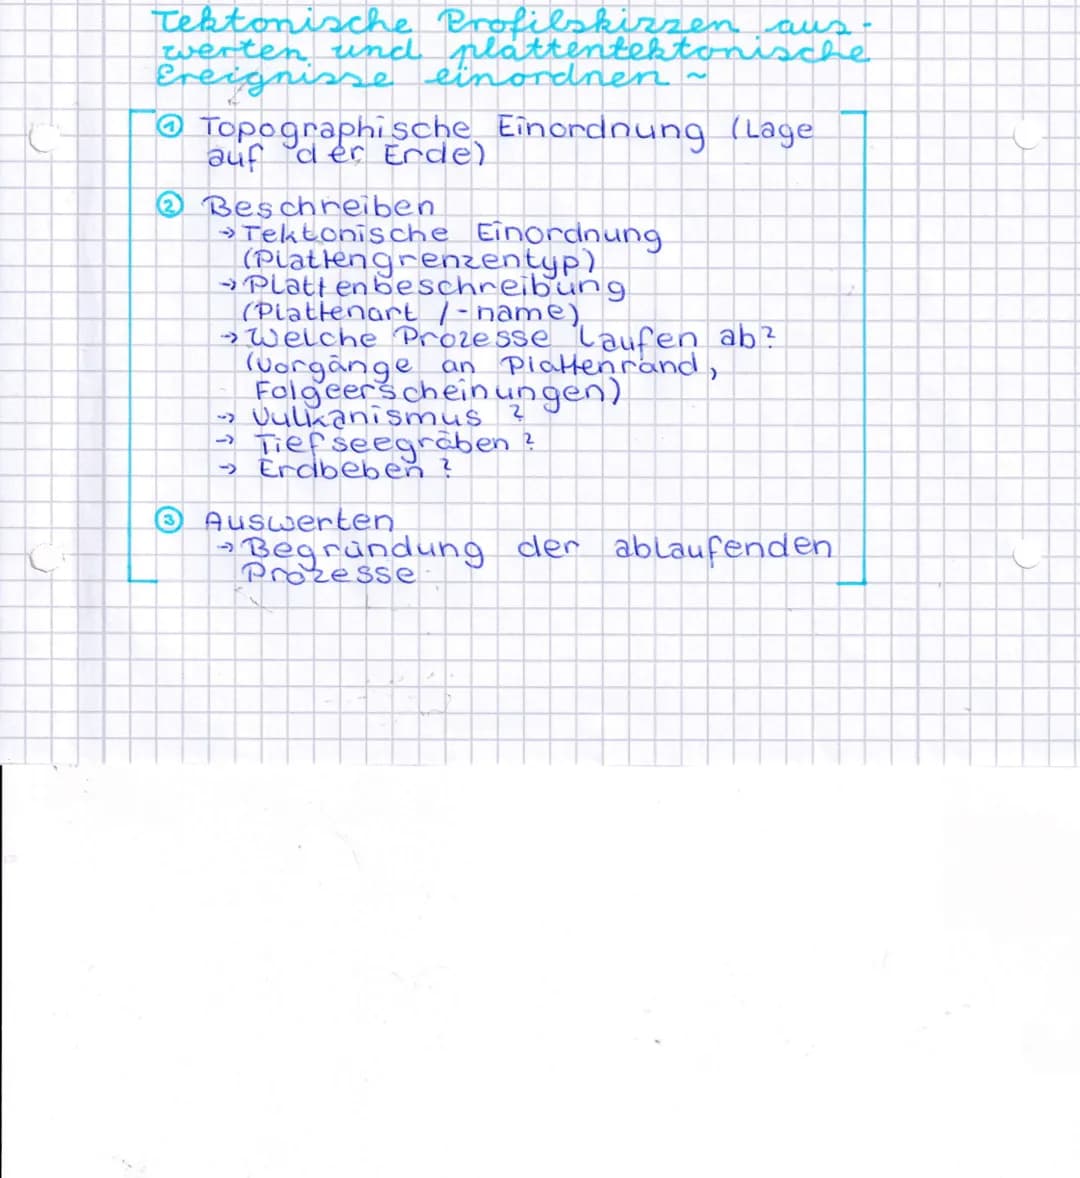 Tektonische Profilskizzen aus-
werten und plattentektonische
Ereignisse einordnen ~
① Topographische Einordnung (Lage
auf der Erde)
② Beschreiben
→ Tektonische Einordnung
(Plattengrenzentyp)
→ Plattenbeschreibung
(Plattenart /-name)
→ Welche Prozesse laufen ab?
(Vorgänge an Plattenrand,
Folgeerscheinungen)
→ Vulkanismus ?
→ Tiefseegräben ?
→ Erdbeben ?
③ Auswerten
→ Begründung der ablaufenden
Prozesse